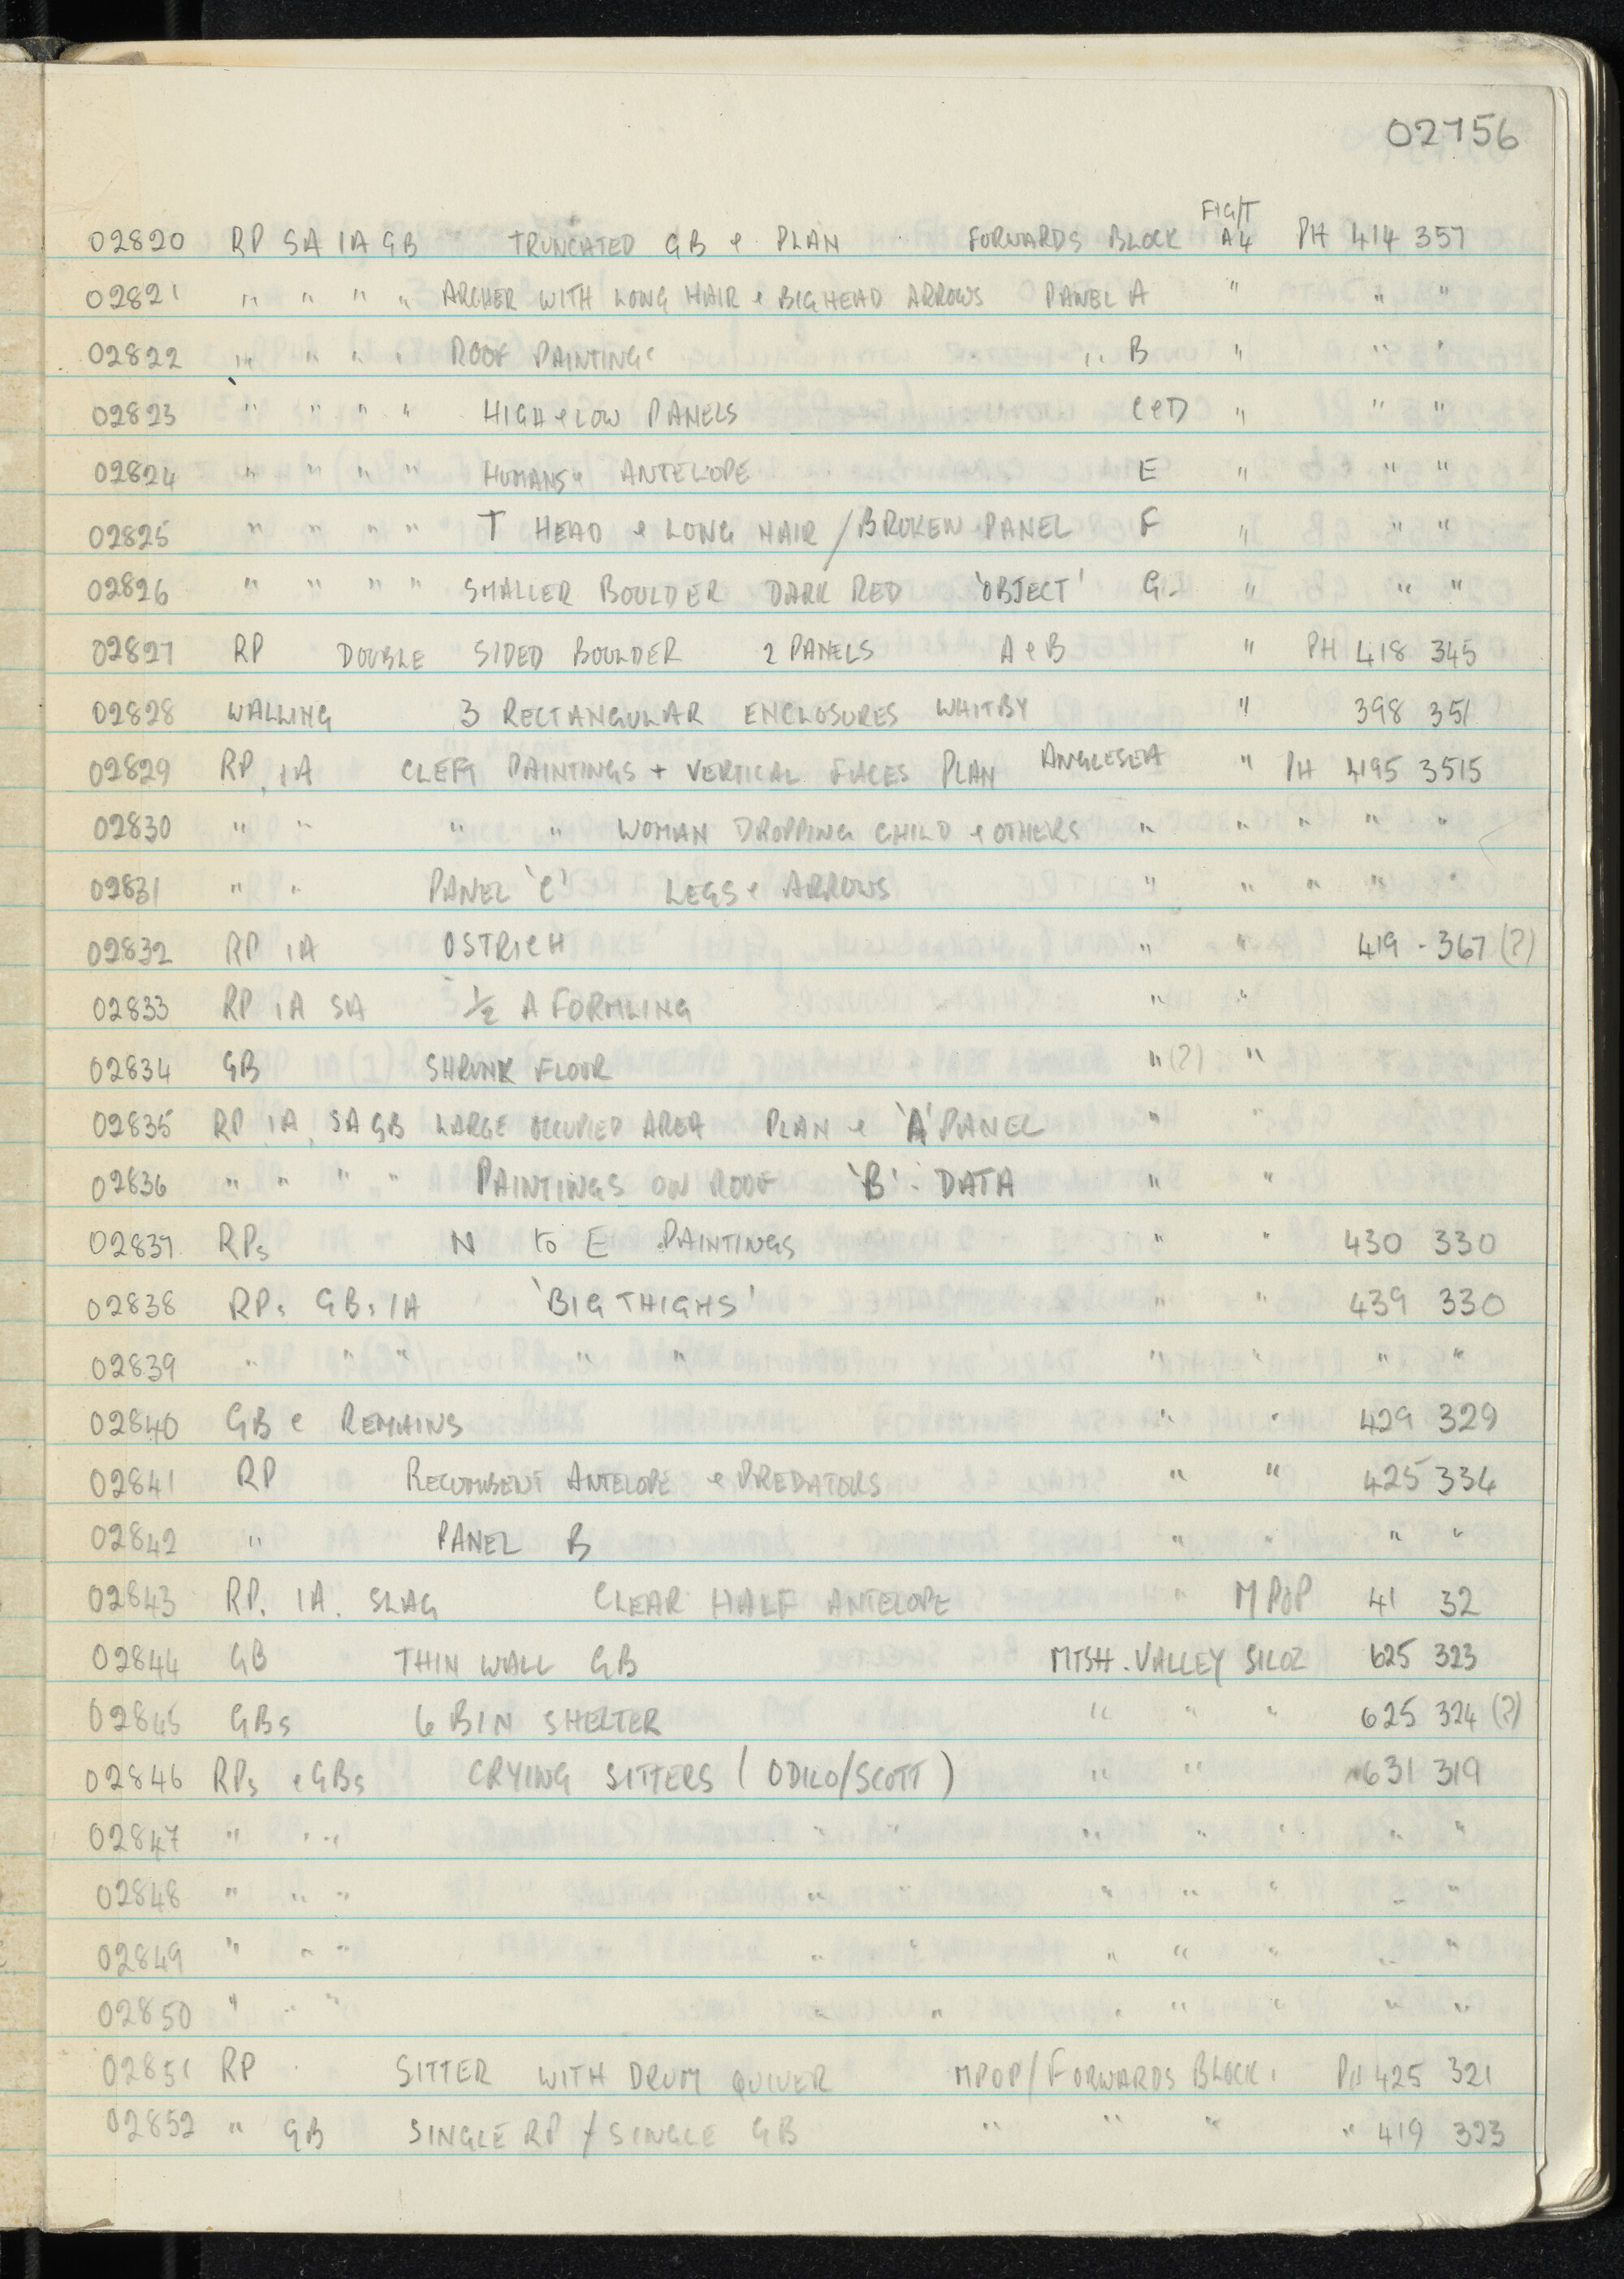 02756
FIG/T
02820 RP SA IA GB TRUNCATED GB & PLAN FORWARDS BLOCK A4 PH 414 357
02821 " " " " ARCHER WITH LONG HAIR & BIGHEAD ARROWS PANEL A " " "
02822 " " " " ROOF PAINTINGS " B " " "
02823 " " " " HIGH & LOW PANELS C & D " " "
02824 " " " " HUMANS & ANTELOPE E " " "
02825 " " " " T HEAD & LONG HAIR / BROKEN PANEL F " " "
02826 " " " " SMALLER BOULDER DARK RED 'OBJECT' G " " "
02827 RP DOUBLE SIDED BOULDER 2 PANELS A & B " PH 418 345
02828 WALLING 3 RECTANGULAR ENCLOSURES WHITBY " 398 351
02829 RP, IA CLEFT PAINTINGS + VERTICAL FACES PLAN ANGLESEA " PH 4195 3515
02830 " " " " WOMAN DROPPING CHILD & OTHERS " " " " "
02831 " " PANEL 'C' LEGS & ARROWS " " " " "
02832 RP IA OSTRICH " " 419 - 367 (?)
02833 RP IA SA ½ A FORMLING " "
02834 GB SHRUNK FLOOR " (?) "
02835 RP, IA, SA GB LARGE OCCUPIED AREA PLAN & 'A' PANEL " "
02836 " " " " PAINTINGS ON ROOF 'B' - DATA " "
02837 RPs N to E PAINTINGS " " 430 330
02838 RPs GBs IA 'BIG THIGHS' " " 439 330
02839 " " " " " " " " "
02840 GB & REMAINS " " 429 329
02841 RP RECUMBENT ANTELOPE & PREDATORS " " 425 334
02842 " PANEL B " " " "
02843 RP. IA. SLAG CLEAR HALF ANTELOPE " MPOP 41 32
02844 GB THIN WALL GB MTSH. VALLEY SILOZ 625 323
02845 GBs 6 BIN SHELTER " " " 625 324 (?)
02846 RPs & GBs CRYING SITTERS (ODILO/SCOTT) " " 631 319
02847 " " " " " " " " " "
02848 " " " " " " " " " "
02849 " " " " " " " " " "
02850 " " " " " " " " " "
02851 RP SITTER WITH DRUM QUIVER MPOP/FORWARDS BLOCK. PH 425 321
02852 " GB SINGLE RP / SINGLE GB " " " " 419 323